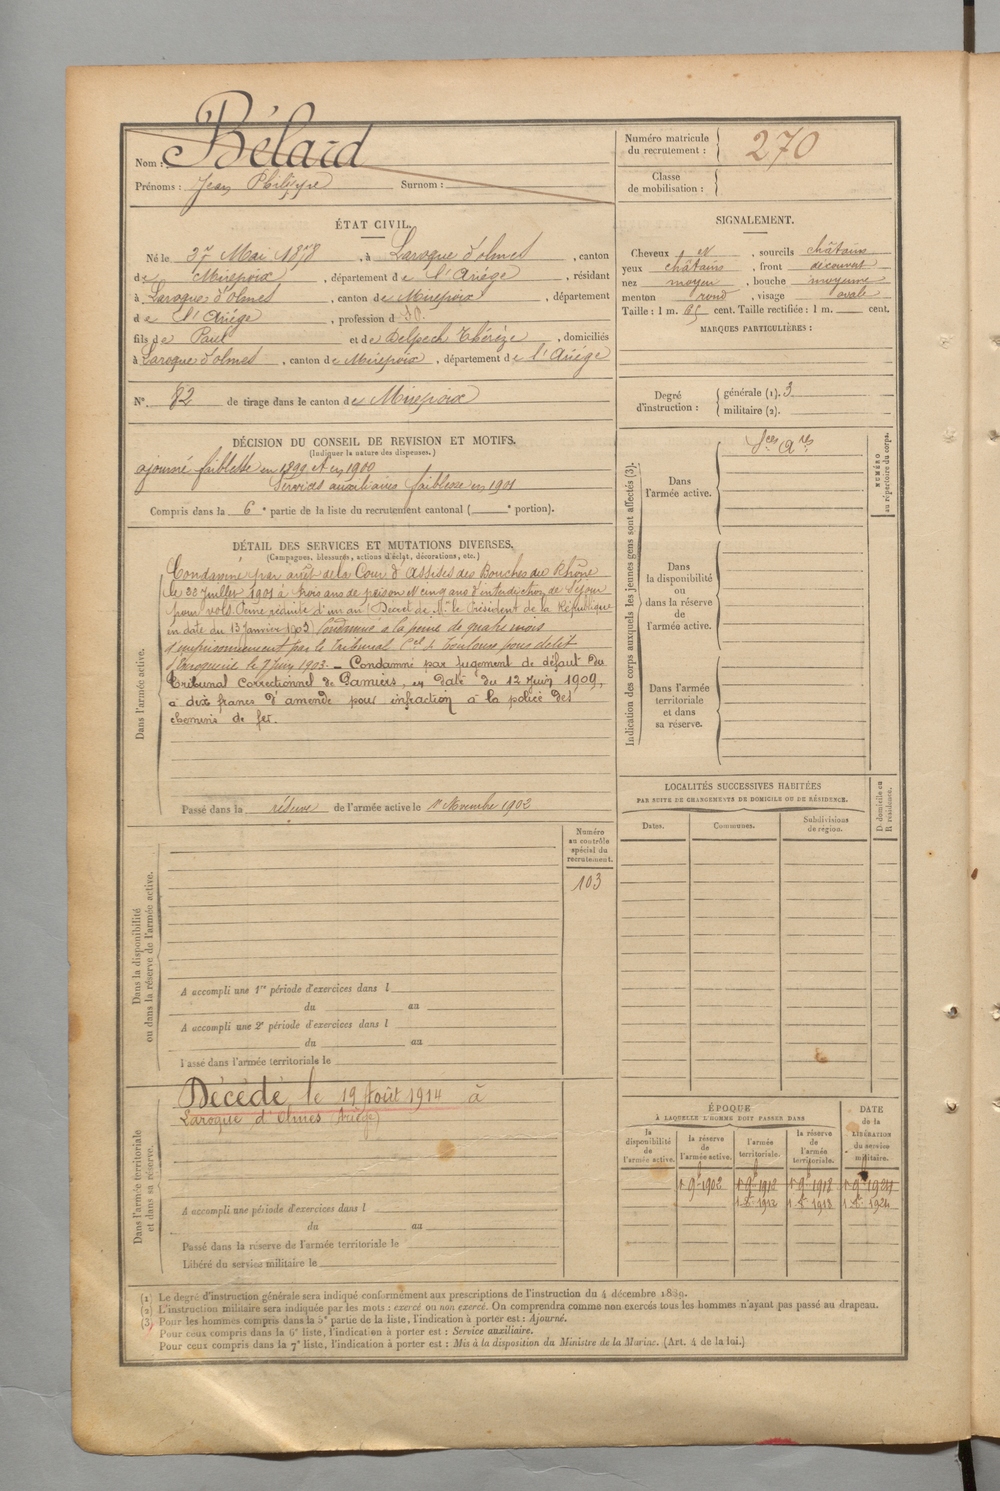 Nom : Bélard
Prénoms : Jean Philippe Surnom :
Numéro matricule du recrutement : 270
Classe de mobilisation :
ÉTAT CIVIL.
Né le 27 Mai 1878, à Laroque d'olmes, canton
de Mirepoix, département de l'Ariége, résidant
à Laroque d'olmes, canton de Mirepoix, département
de l'Ariége, profession d
fils de Paul et de Delpech Thérèze, domiciliés
à Laroque d'olmes, canton de Mirepoix, département de l'Ariége
N° 82 de tirage dans le canton de Mirepoix
SIGNALEMENT.
Cheveux, sourcils châtains
yeux châtains, front découvert
nez moyen, bouche moyenne
menton rond, visage ovale
Taille : 1 m. 65 cent. Taille rectifiée : 1 m. cent.
MARQUES PARTICULIÈRES :
Degré d'instruction :
générale (1). 3
militaire (2).
DÉCISION DU CONSEIL DE REVISION ET MOTIFS.
(Indiquer la nature des dispenses.)
ajourné faiblesse en 1899 et en 1900
Services auxiliaires faiblesse en 1901
Compris dans la 6e partie de la liste du recrutement cantonal ( e portion).
DÉTAIL DES SERVICES ET MUTATIONS DIVERSES.
(Campagnes, blessures, actions d'éclat, décorations, etc.)
Dans l'armée active.
Condamné par arrêt de la Cour d'Assises des Bouches du Rhône
le 30 Juillet 1901 à trois ans de prison et cinq ans d'interdiction de Séjour
pour vols. Peine réduite d'un an (Décret de Mr le Président de la République
en date du 13 Janvier 1903) Condamné à la peine de quatre mois
d'emprisonnement par le Tribunal Cel de Toulouse pour délit
d'escroquerie le 9 Juin 1903. — Condamné par jugement de défaut du
Tribunal Correctionnel de Pamiers, en date du 12 Juin 1909,
à dix francs d'amende pour infraction à la police des
chemins de fer.
Passé dans la réserve de l'armée active le 1er Novembre 1902
Indication des corps auxquels les jeunes gens sont affectés (3).
NUMÉRO au répertoire du corps.
Dans l'armée active.
Sces Ares
Dans la disponibilité ou dans la réserve de l'armée active.
Dans l'armée territoriale et dans sa réserve.
LOCALITÉS SUCCESSIVES HABITÉES
PAR SUITE DE CHANGEMENTS DE DOMICILE OU DE RÉSIDENCE.
Dates. Communes. Subdivisions de région. D. domicile ou R. résidence.
Dans la disponibilité ou dans la réserve de l'armée active.
Numéro au contrôle spécial du recrutement.
103
A accompli une 1re période d'exercices dans l
du au
A accompli une 2e période d'exercices dans l
du au
Passé dans l'armée territoriale le
Dans l'armée territoriale et dans sa réserve.
Décédé le 19 Août 1914 à
Laroque d'Olmes (Ariège)
A accompli une période d'exercices dans l
du au
Passé dans la réserve de l'armée territoriale le
Libéré du service militaire le
ÉPOQUE
À LAQUELLE L'HOMME DOIT PASSER DANS
DATE de la LIBÉRATION du service militaire.
la disponibilité de l'armée active. la réserve de l'armée active. l'armée territoriale. la réserve de l'armée territoriale.
1 9b 1902 1 9b 1912 1 9b 1918 1 9b 1924
1 X 1912 1 X 1918 1 X 1924
(1) Le degré d'instruction générale sera indiqué conformément aux prescriptions de l'instruction du 4 décembre 1889.
(2) L'instruction militaire sera indiquée par les mots : exercé ou non exercé. On comprendra comme non exercés tous les hommes n'ayant pas passé au drapeau.
(3) Pour les hommes compris dans la 5e partie de la liste, l'indication à porter est : Ajourné.
Pour ceux compris dans la 6e liste, l'indication à porter est : Service auxiliaire.
Pour ceux compris dans la 7e liste, l'indication à porter est : Mis à la disposition du Ministre de la Marine. (Art. 4 de la loi.)